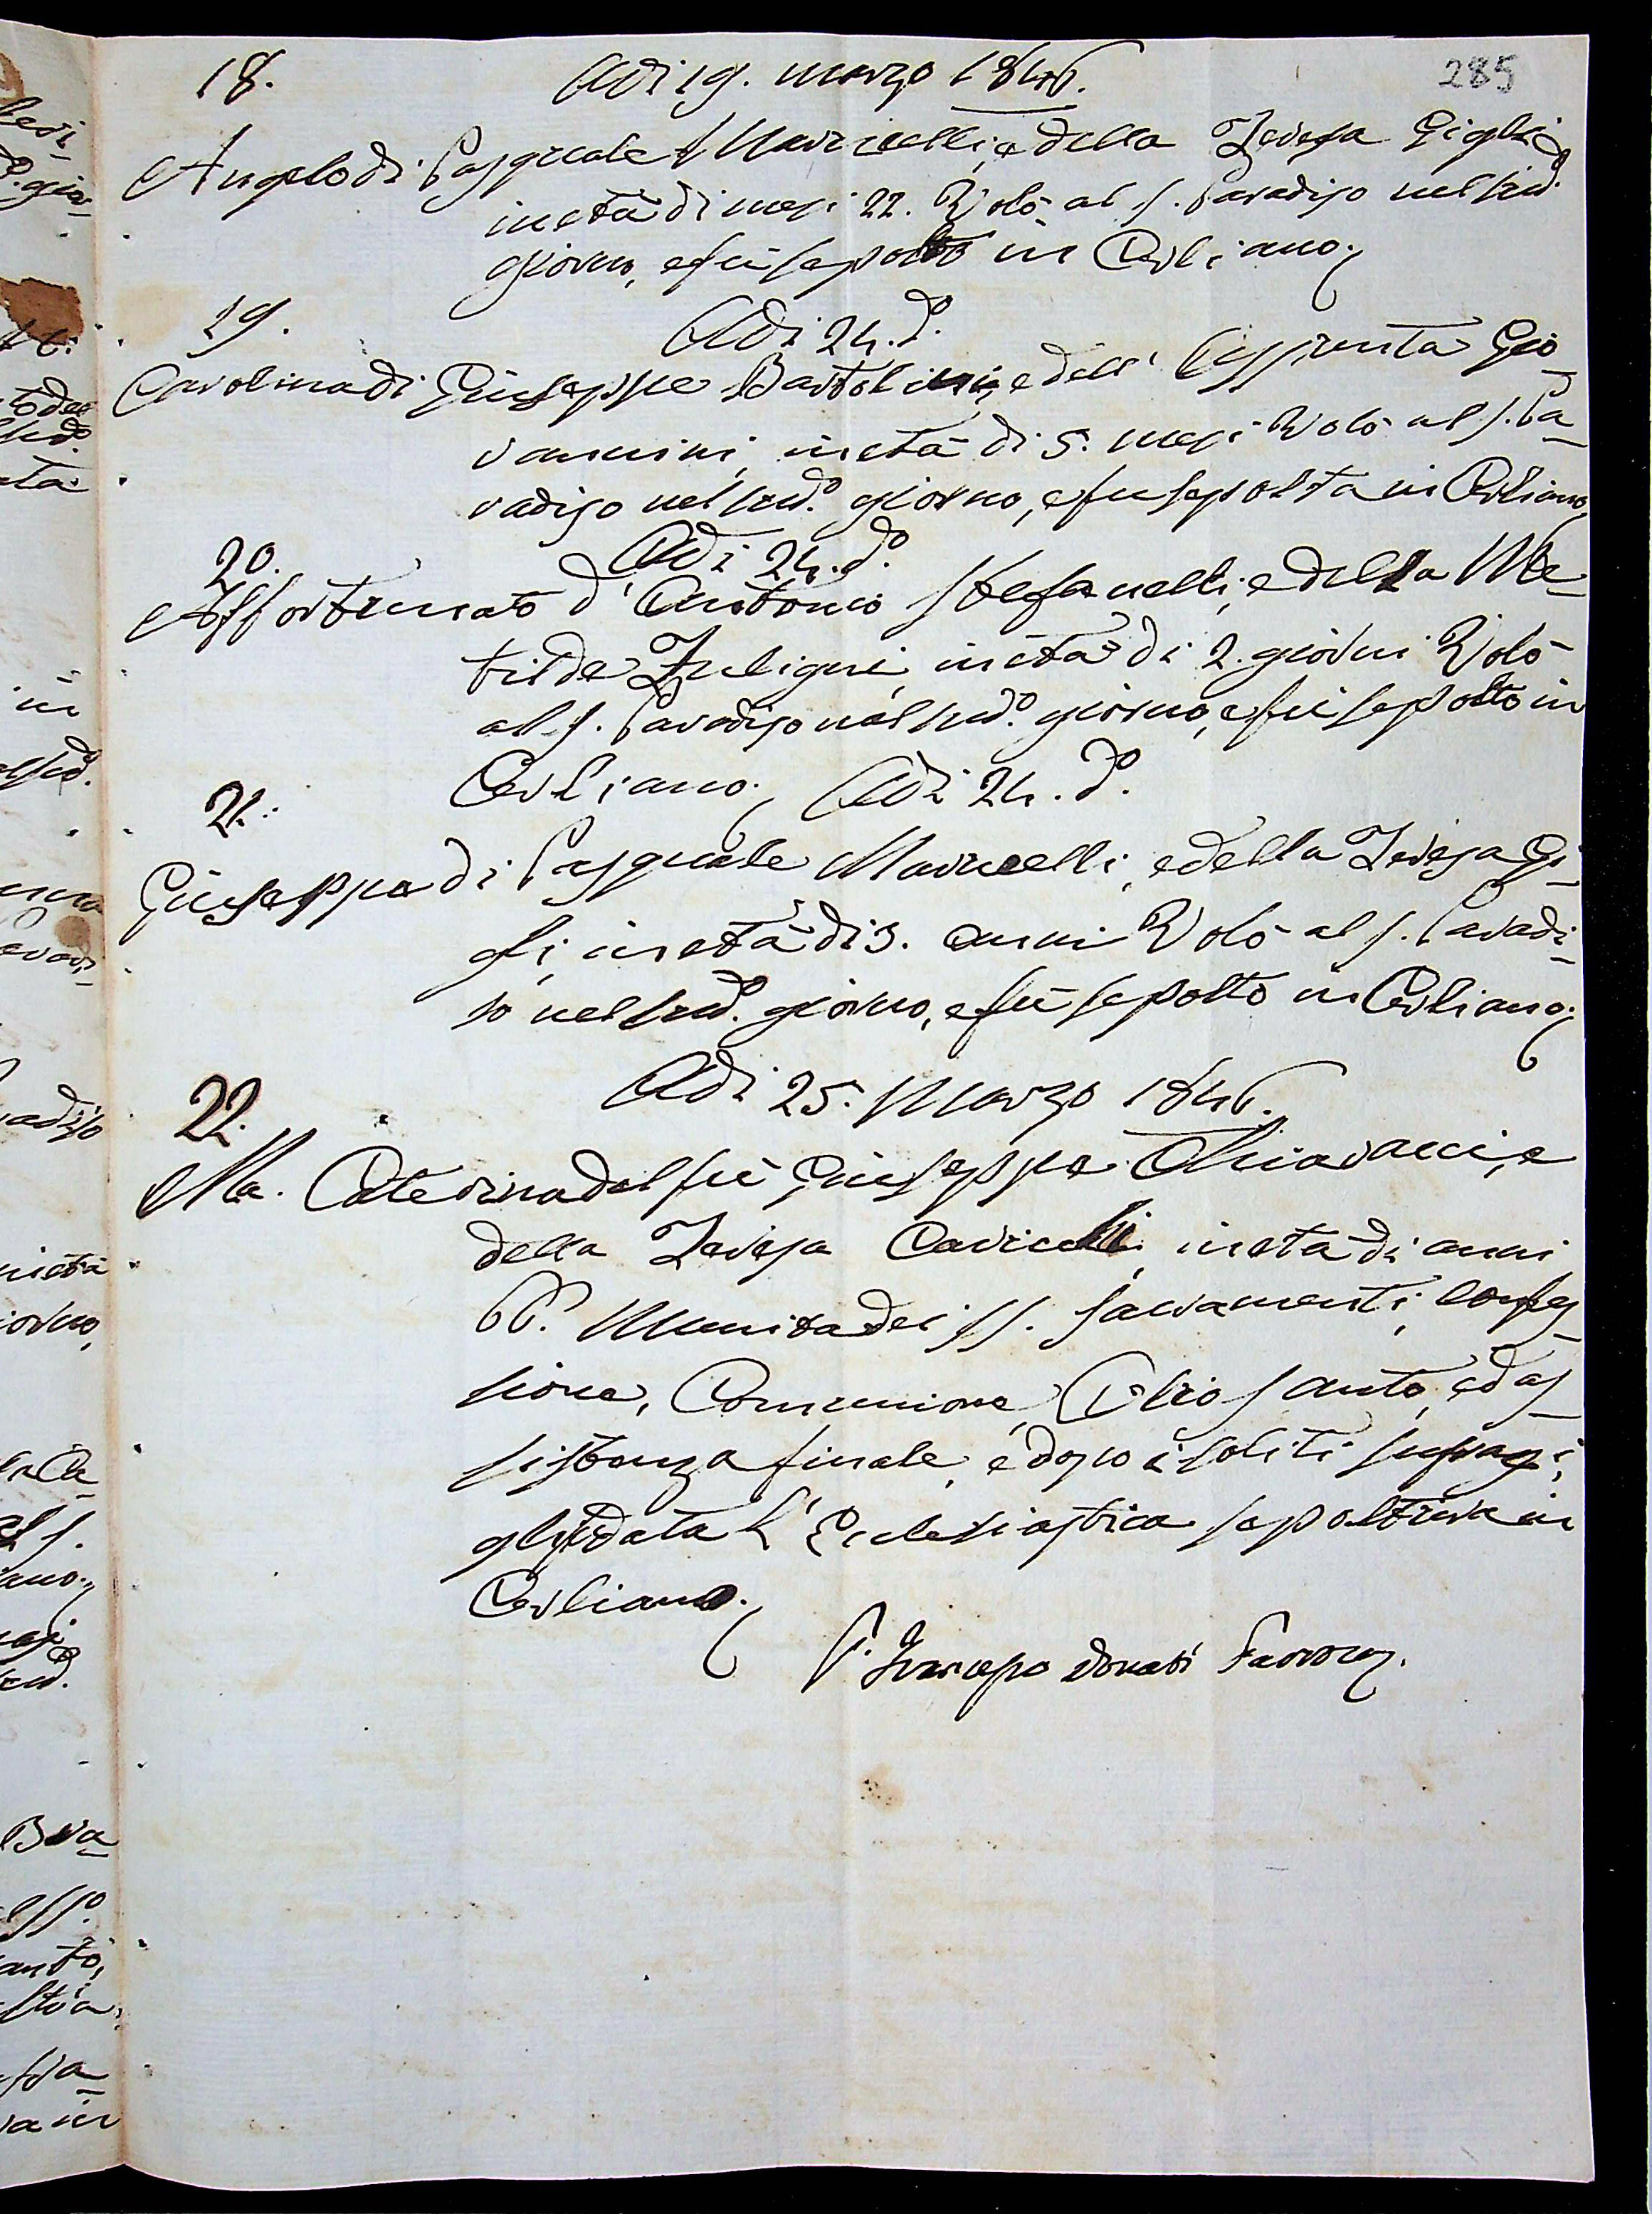 285
18. Adi 19. marzo 1846.
Angelo di Pasquale Marinelli, e della Teresa Gigli
in età di mesi 22. Volò al s. Paradiso nel sud.
giorno, e fù sepolto in Cerliano.
19. Adi 24. do.
Carolina di Giuseppe Bartolini, e dell' Assunta Gio-
vannini, in età di 5. mesi Volò al s. Pa-
radiso nel sudo. giorno, e fu sepolta in Cerliano,
20. Adi 24. do.
Affortunato d' Antonio Stefanelli, e della Ma-
tilde Fuligni, in età di 2. giorni Volò
al s. Paradiso nel sudo. giorno, e fù sepolto in
Cerliano. Adi 24. do.
21.
Giuseppa di Pasquale Marinelli, e della Teresa Gi-
gli, in età di 3. anni Volò al s. Paradi-
so nel sudo. giorno, e fù sepolto in Cerliano.
Adi 25. Marzo 1846.
22.
Ma. Caterina del fù Giuseppe Chiaracci, e
della Teresa in età di anni
66. Munita dei SS. Sacramenti, Confes-
sione, Comunione, Olio Santo, ed as-
sistenza finale, e dopo i soliti sufragi,
data l' Eclesiastica sepoltura in
Cerliano.
P. Donati